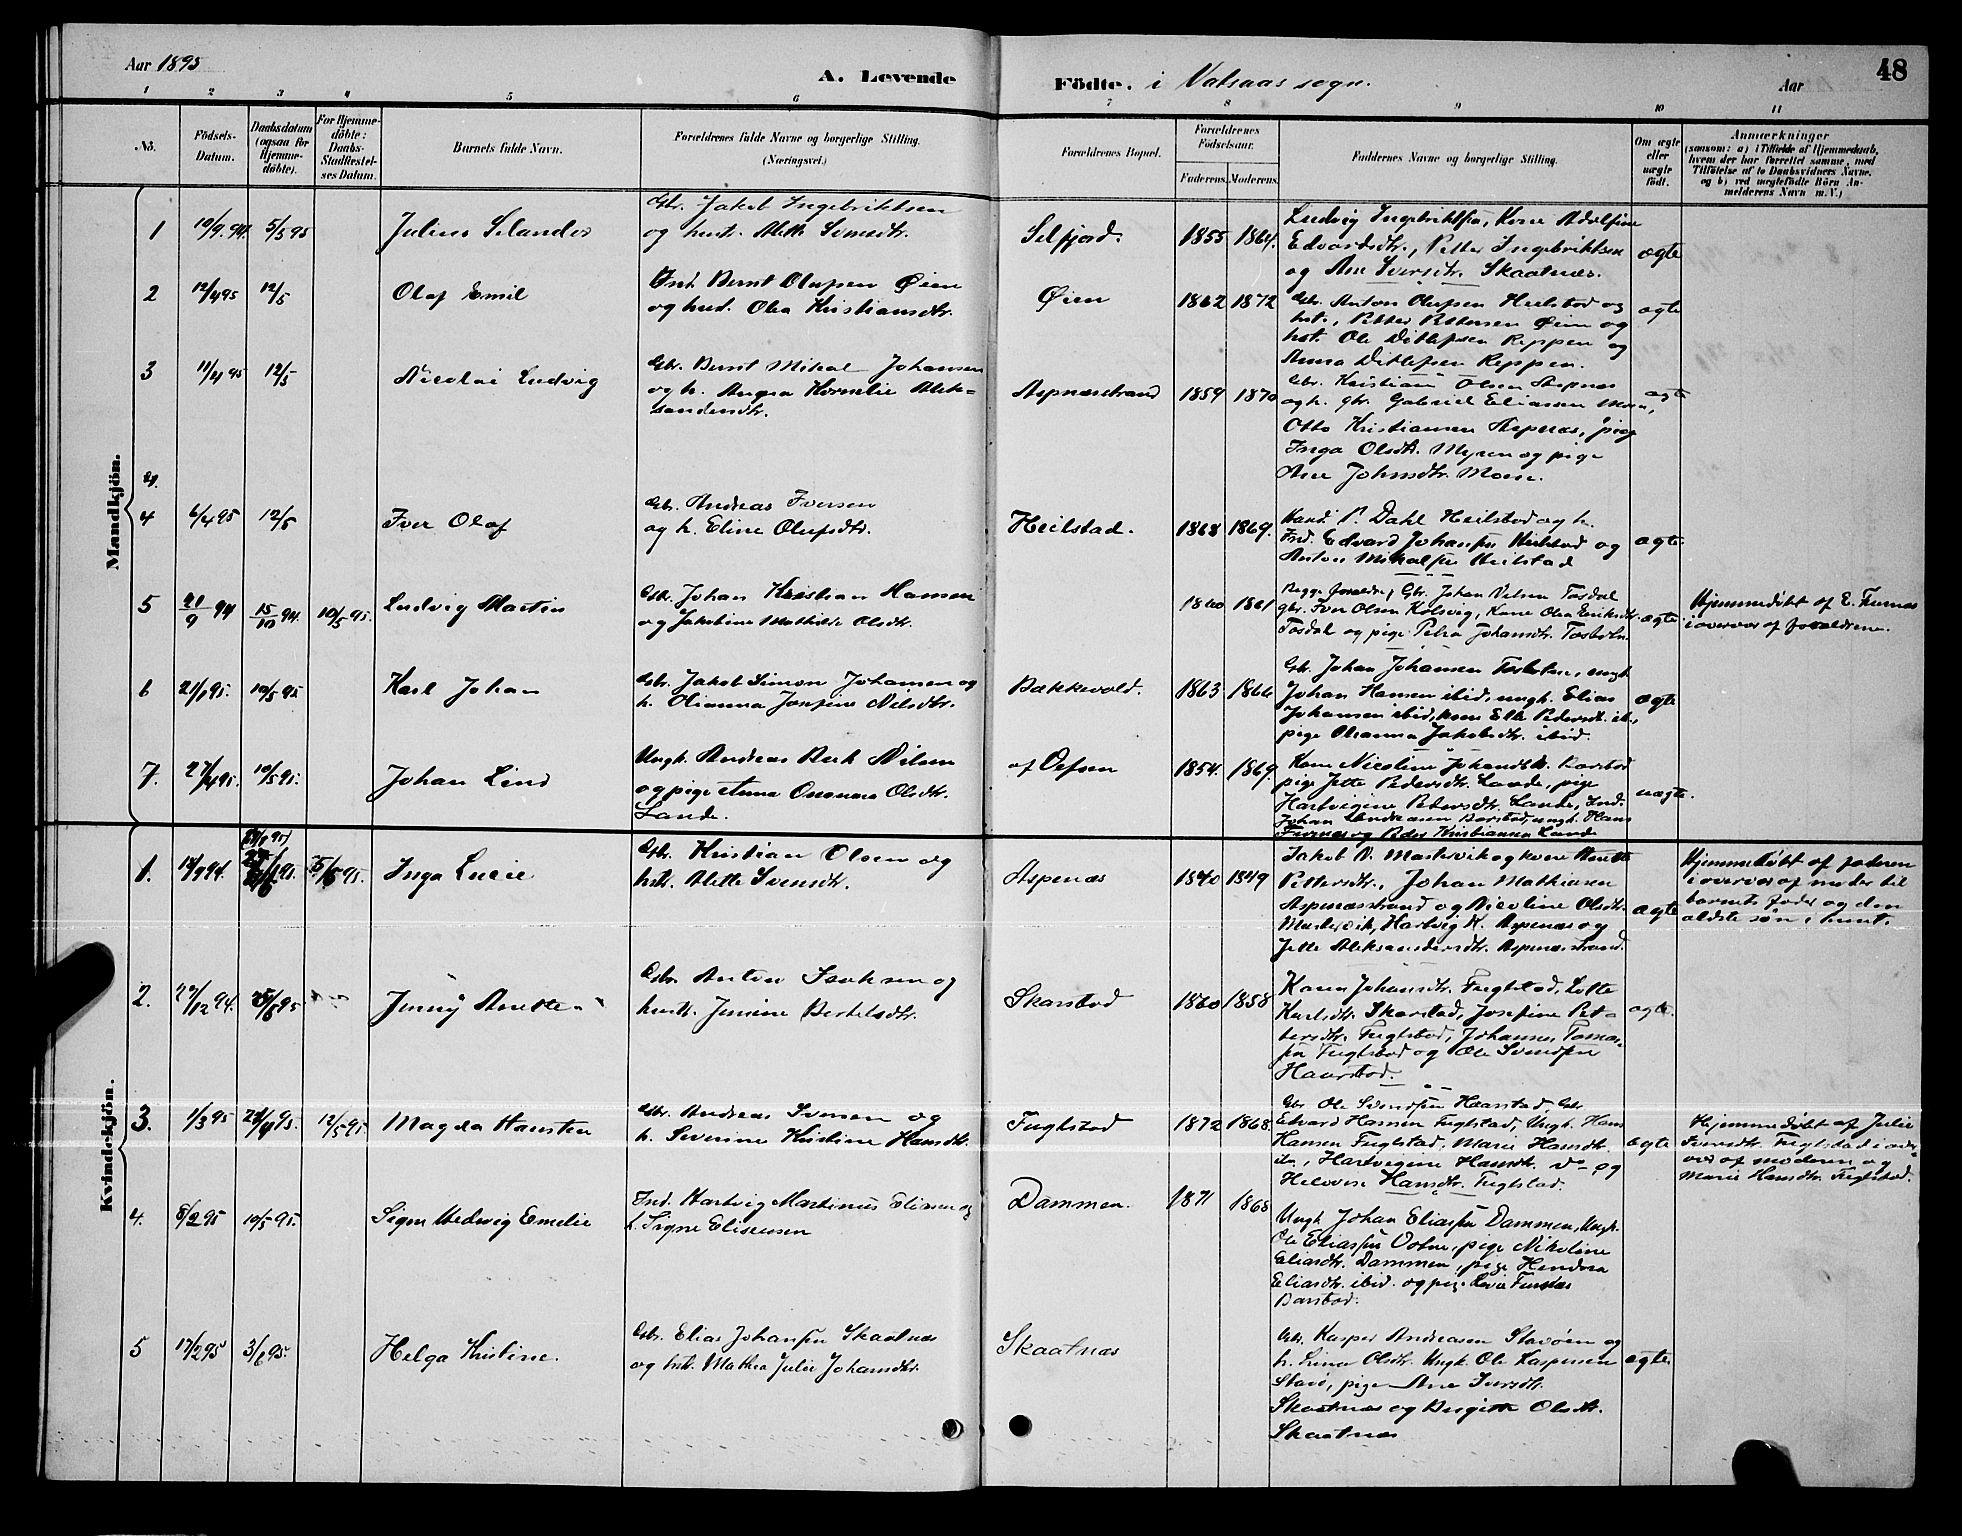 Aar 1895
A. Levende
Födte. i Vatsaas sogn.
Aar
48
1 2 3 4 5 6 7 8 9 10 11
No.
Födsels-
Datum.
Daabsdatum
(ogsaa for
Hjemme-
döbte).
For Hjemme-
döbte:
Daabs-
Stadfæstel-
ses Datum.
Barnets fulde Navn.
Forældrenes fulde Navne og borgerlige Stilling.
(Næringsvei.)
Forældrenes Bopæl.
Forældrenes
Födselsaar.
Faderens. Moderens.
Faddernes Navne og borgerlige Stilling.
Om ægte
eller
uægte
födt.
Anmærkninger
(saasom: a) i Tilfælde af Hjemmedaab,
hvem der har forrettet samme, med
Tilföielse af to Daabsvidners Navne,
og b) ved uægtefödte Börn An-
melderens Navn m. V.)
Mandkjön.
1 10/9.94. 5/5 95 Julius Selander
Gbr. Jakob Ingebriktsen
og hust. Mette Svensdtr.
Selfjord. 1855 1864.
Ludvig Ingebriktsen, Kone Adolfine
Edvardsdtr., Petter Ingebriktsen
og Ane Iversdtr. Skaatnæs.
ægte
2 12/4 95 12/5 Olaf Emil
Ind. Bernt Olufsen Øien
og hust. Olea Kristiansdtr.
Øien 1862 1872
Gbr. Anton Olufsen Heilstad og
hst., Petter Pettersen Øien og
hst. Ole Ditlefsen Reppen og
Anna Ditlefsen Reppen.
ægte
3 11/4 95 12/5 Nicolai Ludvig
Gbr. Bernt Mikal Johansen
og h. Angea Kornelie Alek-
sandersdtr.
Aspnæsstrand 1859 1870
Gbr. Kristian Olsen Aspnæs
og h. gbr. Gabriel Eliassen Moen,
Otto Kristiansen Aspenæs, pige
Inga Olsdtr. Myren og pige
Ane Johnsdtr. Moen.
ægte
4 6/4 95 12/5 Iver Olaf
Gbr. Andreas Iversen
og h. Eline Olufsdtr.
Heilstad. 1868 1869.
Hand. P. Dahl Heilstad og h.
Ind. Edvard Johansen Heilstad og
Anton Mikalsen Heilstad
ægte
5 21/9 94 15/10 94. 10/5 95. Ludvig Martin
Gbr. Johan Kristian Hansen
og Jakobine Mathilde Olsdtr.
1860 1861
Begge forældre, Gbr. Johan Nilsen Tosdal
gbr. Iver Olsen Kolsvig, Kone Olea Eriksdtr.
Tosdal og pige Petra Johansdtr. Tosbotn.
ægte.
Hjemmedöbt af E. Furnes
i overvær af forældrene.
6 21/1 95. 10/5 95 Karl Johan
Gbr. Jakob Simon Johansen og
h. Olianna Josefine Nilsdtr.
Bækkevold. 1863 1866
Gbr. Johan Johansen Tosbotn, ungk.
Johan Hansen ibid, ungk. Elias
Johansen ibid, kone Elle Pedersdtr. ib.,
pige Oleanna Jakobsdtr. ibid.
ægte
7. 27/4 95. 10/5 95. Johan Lind
Ungk. Andreas Berk Nilsen
og pige Anna Olsdtr.
Lande.
af Vefsen 1854. 1869.
Kone Nicoline Johansdtr. Barstad
pige Jette Pedersdtr. Lande, pige
Hartvigine Pedersdtr. Lande, Ind.
Johan Andreasen Barstad, ungk. Hans
Furnes og Peder Kristiansen Lande
uægte.
Kvindekjön.
1. Inga Lucie
Gbr. Kristian Olsen og
hst. Mette Svensdtr.
Aspenæs 1840 1849
Jakob N. Markvik og kone Anette
Pettersdtr., Johan Mathiasen
Aspenæsstrand og Nicoline Olsdtr.
Hartvig K. Aspenæs og
Jette Aleksandersdtr. Aspenæsstrand.
ægte
Hjemmedöbt af faderen
i overvær af moder til
barnets fader og den
ældste søn i huset.
2. 29/12 94. Jenny Anette
Gbr. Anton Isaksen og
hust. Jensine Bertelsdtr.
Skarstad 1860 1858
Karen Johansdtr. Fuglstad, Lotte
Karlsdtr. Skarstad, Josefine Pet-
tersdtr. Fuglstad, Johannes Tomas-
sen Fuglstad og Ole Svendsen
Haarstad.
ægte.
3. 1/3 95 12/5 95. Magda Hansten
Gbr. Andreas Svensen og
h. Severine Kristine Hansdtr.
Fuglstad 1872 1868.
Gbr. Ole Svendsen Haarstad, Gbr.
Edvard Hansen Fuglstad, Ungk. Hans
Hansen Fuglstad, Marie Hansdtr.
ib., Hartvigine Hansdtr. do og
Helovise Hansdtr. Fuglstad.
ægte
Hjemmedöbt af Julie
Iversdtr. Fuglstad i over-
vær af moderen og
Marie Hansdtr. Fuglstad.
4. 8/2 95 10/5 95. Signe Hedvig Emelie
Ind. Hartvig Martinus Elisen og
h. Signe Eliseusen
Dammen. 1871 1868
Ungk. Johan Eliassen Dammen, Ungk.
Ole Eliassen, pige Nikoline
Eliasdtr. Dammen, pige Hendrea
Eliasdtr. ibid. og pige Lovise Furnæs
Barstad.
5 17/2 95 3/6 95. Helga Kristine.
Gbr. Elias Johansen Skaatnæs
og hst. Mathea Julie Johansdtr.
Skaatnæs
Gbr. Kasper Andreasen Stavøen og
h. Lina Olsdtr. Ungk. Ole Kaspersen
Stavø, pige Ane Iversdtr.
Skaatnæs og Birgitte Olsdtr.
Skaatnæs
ægte